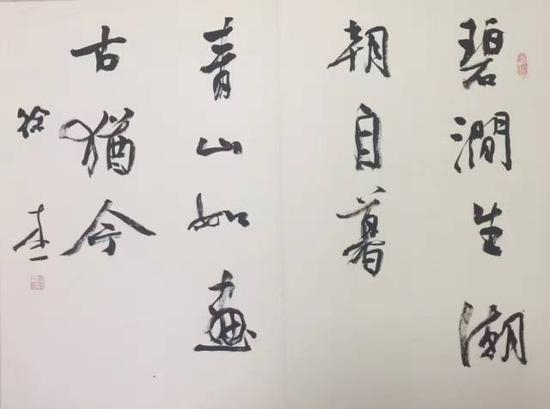 碧澗生潮
朝自暮
青山如畫
古猶今
徐